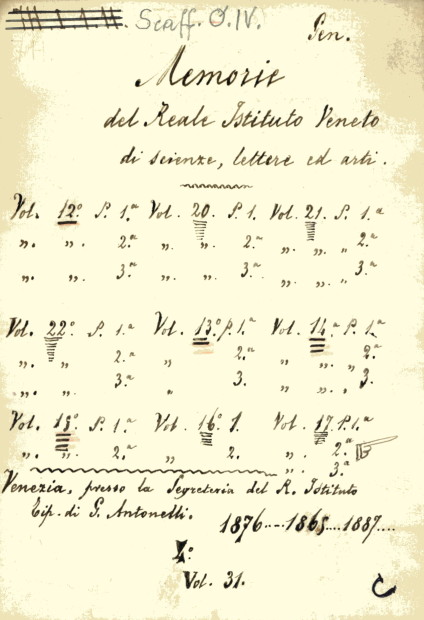 Scaff. O.IV.
Pen.
Memorie
del Reale Istituto Veneto
di scienze, lettere ed arti.
Vol. 12º P. 1.ª Vol. 20. P. 1. Vol. 21. P. 1.ª
„. „. 2.ª „. „. 2.ª „. „. „ 2.ª
„. „. 3.ª „. „. 3.ª „. „. „ 3.ª
Vol. 22º P. 1.ª Vol. 13º P. 1.ª Vol. 14ª P. 1.ª
„. „ 2.ª „ 2.ª „ „ 2.ª
„. „ 3.ª „ 3. „ „. „. 3.
Vol. 18º P. 1.ª Vol. 16º 1. Vol. 17. P. 1.ª
„. „. 2.ª „ 2. „ „. 2.ª
„. 3.ª
Venezia, presso la Segreteria del R. Istituto
Tip. di G. Antonelli.
1876....1865....1887....
4º
Vol. 31.